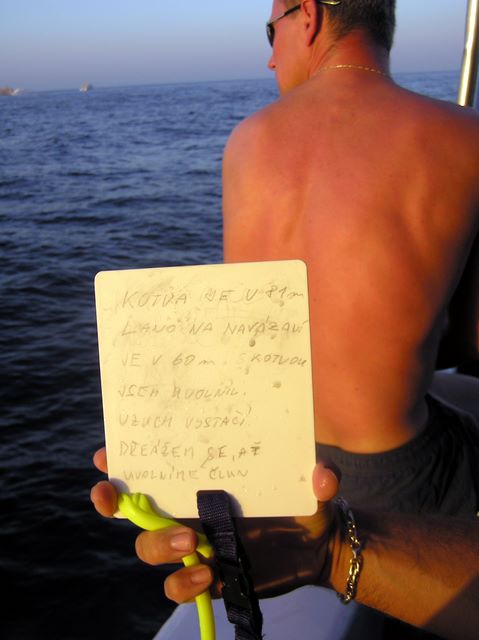 KOTVA JE V 81m
LANO NA NAVÁZÁNÍ
JE V 60m. S KOTVOU
JSEM HVOLNIL.
VZUCH VYSTAČÍ
DRŽÍM SE, AŽ
UVOLNÍME ČLUN